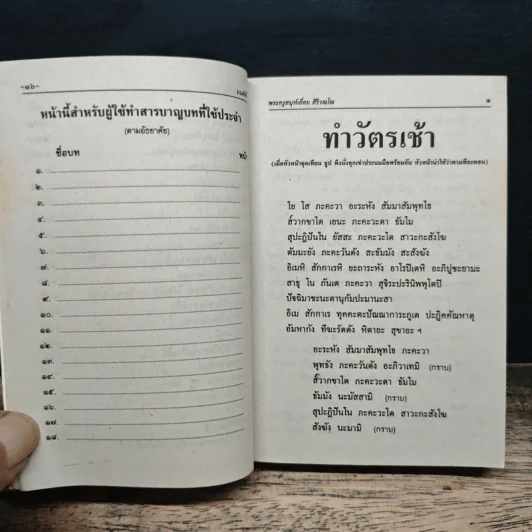 -๑๖-
หน้านี้สำหรับผู้ใช้ทำสารบาญบทที่ใช้ประจำ
(ตามอัธยาศัย)
ชื่อบท
หน้า
๑.
๒.
๓.
๔.
๕.
๖.
๗.
๘.
๙.
๑๐.
๑๑.
๑๒.
๑๓.
๑๔.
๑๕.
๑๖.
๑๗.
๑๘.
พระครูสมุห์เอี่ยม สิริวณฺโณ
๑
ทำวัตรเช้า
(เมื่อหัวหน้าจุดเทียน ธูป พึงนั่งคุกเข่าประนมมือพร้อมกัน หัวหน้านำให้ว่าตามทีละตอน)
โย โส ภะคะวา อะระหัง สัมมาสัมพุทโธ
สฺวากขาโต เยนะ ภะคะวะตา ธัมโม
สุปะฏิปันโน ยัสสะ ภะคะวะโต สาวะกะสังโฆ
ตัมมะยัง ภะคะวันตัง สะธัมมัง สะสังฆัง
อิเมหิ สักกาเรหิ ยะถาระหัง อาโรปิเตหิ อะภิปูชะยามะ
สาธุ โน ภันเต ภะคะวา สุจิระปะรินิพพุโตปิ
ปัจฉิมาชะนะตานุกัมปะมานะสา
อิเม สักกาเร ทุคคะตะปัณณาการะภูเต ปะฏิคคัณหาตุ
อัมหากัง ทีฆะรัตตัง หิตายะ สุขายะ ฯ
อะระหัง สัมมาสัมพุทโธ ภะคะวา
พุทธัง ภะคะวันตัง อะภิวาเทมิ (กราบ)
สฺวากขาโต ภะคะวะตา ธัมโม
ธัมมัง นะมัสสามิ (กราบ)
สุปะฏิปันโน ภะคะวะโต สาวะกะสังโฆ
สังฆัง นะมามิ (กราบ)